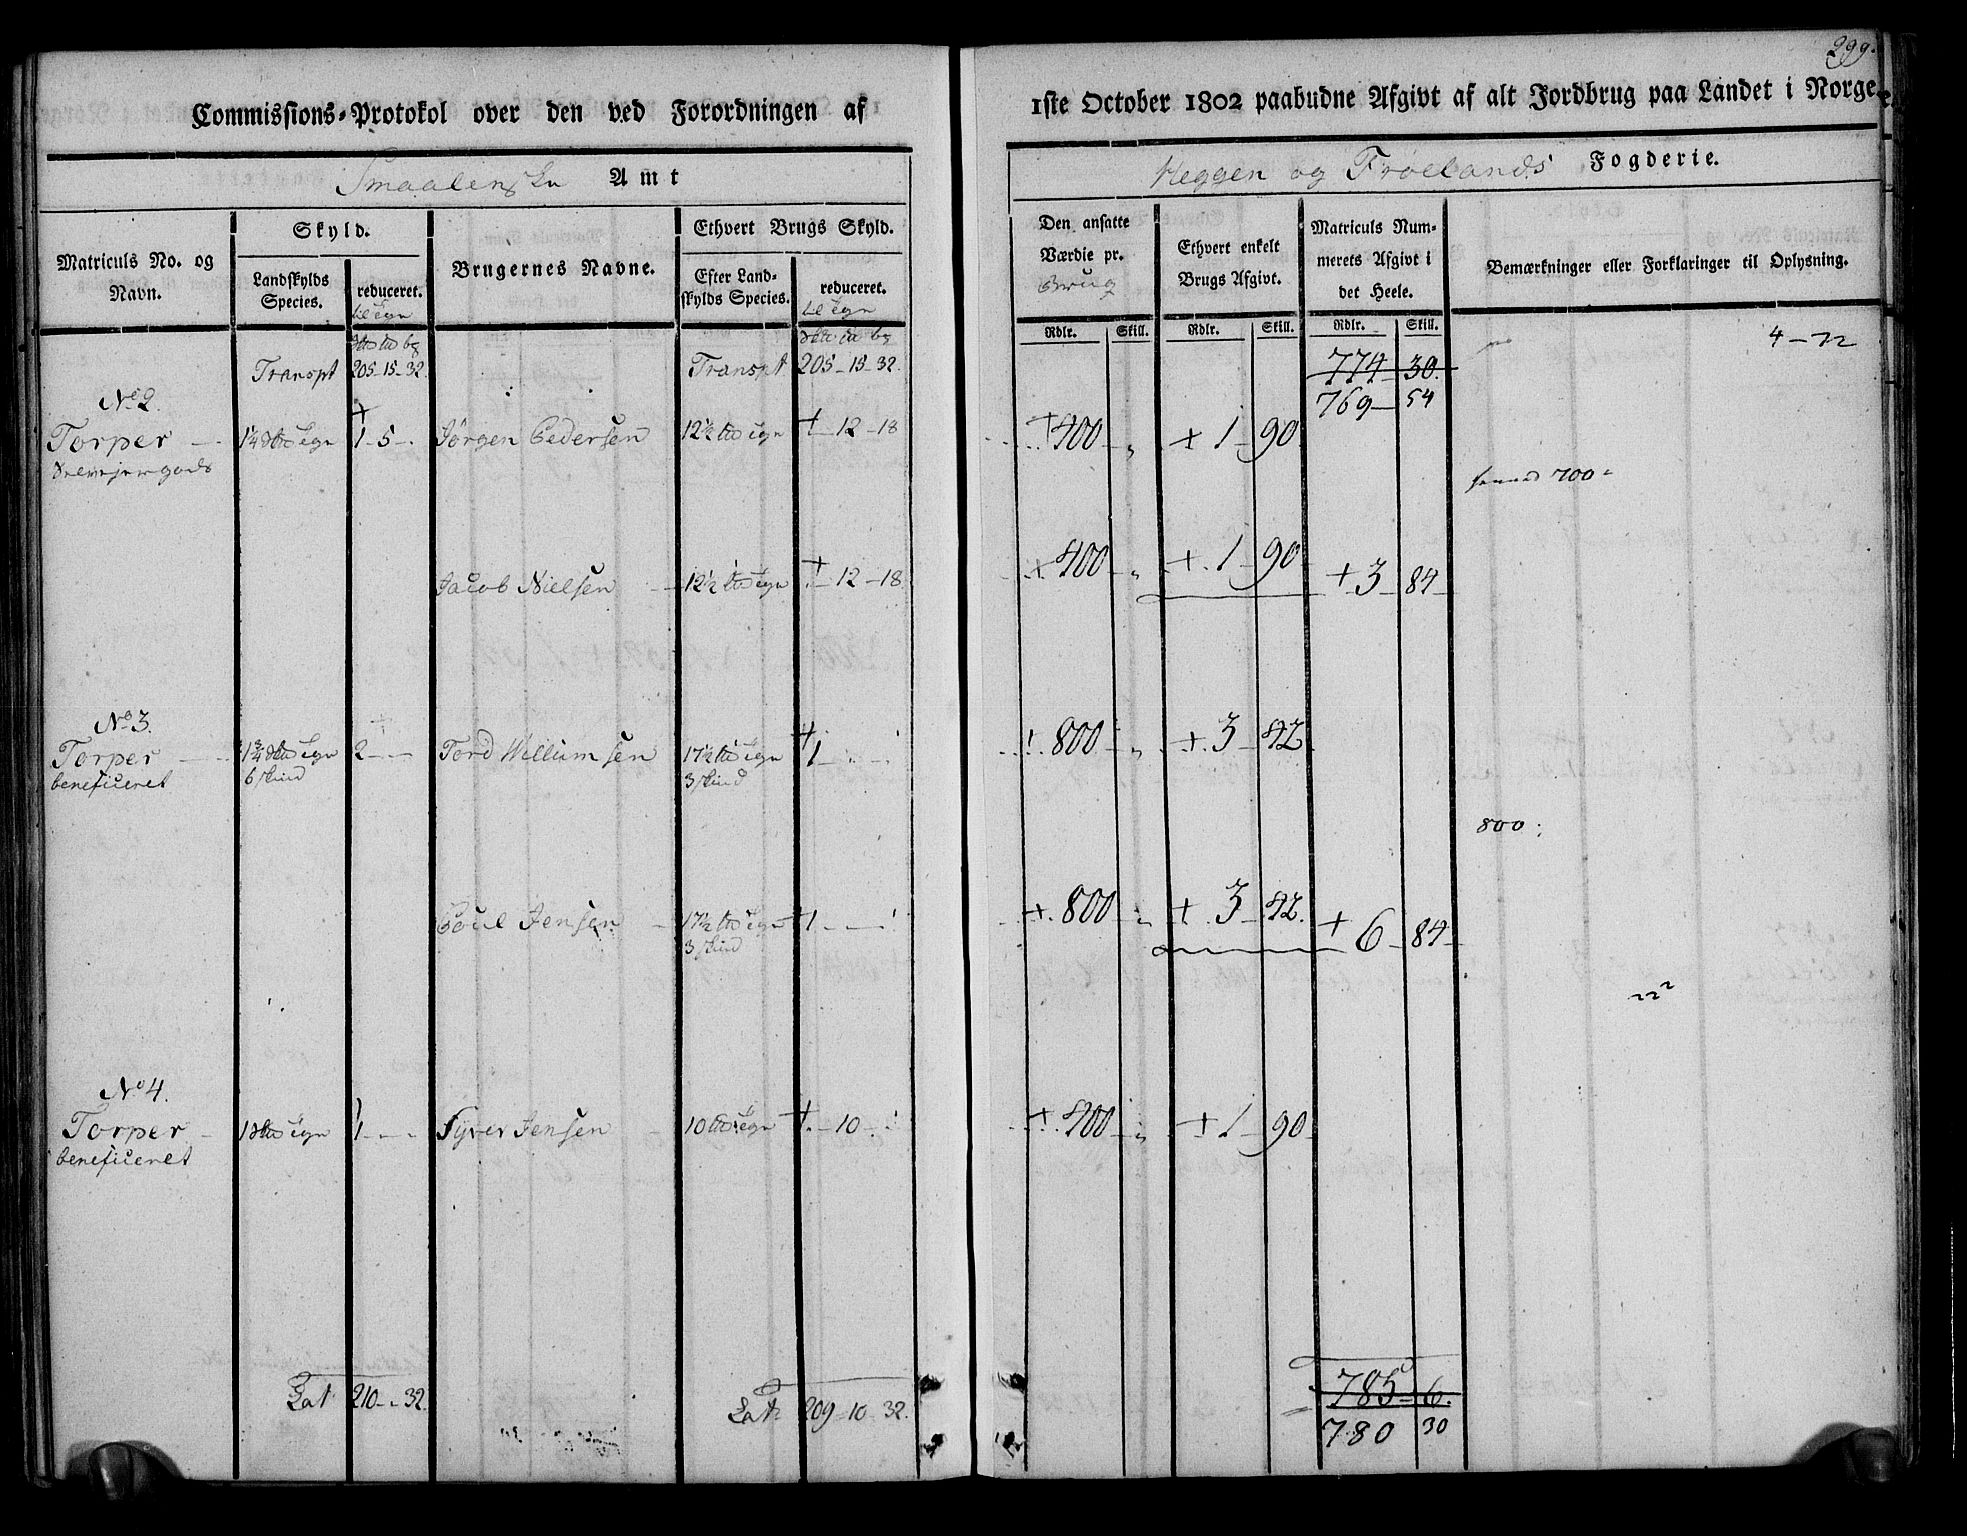 299.
Commissions-Protokol over den ved Forordningen af
1ste October 1802 paabudne Afgivt af alt Jordbrug paa Landet i Norge.
Smaalenske Amt
Heggen og Frøelands Fogderie.
Matriculs No. og Navn.
Skyld.
Landskylds Species.
reduceret.
til Tgn
Brugernes Navne.
Ethvert Brugs Skyld.
Efter Landskylds Species.
reduceret.
til Tgn
Den ansatte Værdie pr.
Brug
Rdlr. Skill.
Ethvert enkelt Brugs Afgivt.
Rdlr. Skill.
Matriculs Nummerets Afgivt i det Heele.
Rdlr. Skill.
Bemærkninger eller Forklaringer til Oplysning.
Transpt 205-15-32. Transpt 205-15-32. 774 30.
769 54
4-72
No 2.
Torper 1¼ Tgn 1-5-. Jørgen Pedersen 12½ Tgn -12-18 400 1-90
700
Jacob Nielsen 12½ Tgn -12-18 400 1 90 3 84
No 3.
Torper 1¾ Tgn 2 - - Tord Willumsen 17½ Tgn 1 800 3 42
beneficeret 6 skind 3 skind
800
Poul Jensen 17½ Tgn 1 800 3 42. 6 84
3 skind
No 4.
Torper 1 Tgn 1 - - Syver Jensen 10 Tgn -10- 400 1 90
beneficeret
Lat 210 - 32. Lat 209-10-32. 785 6.
780 30